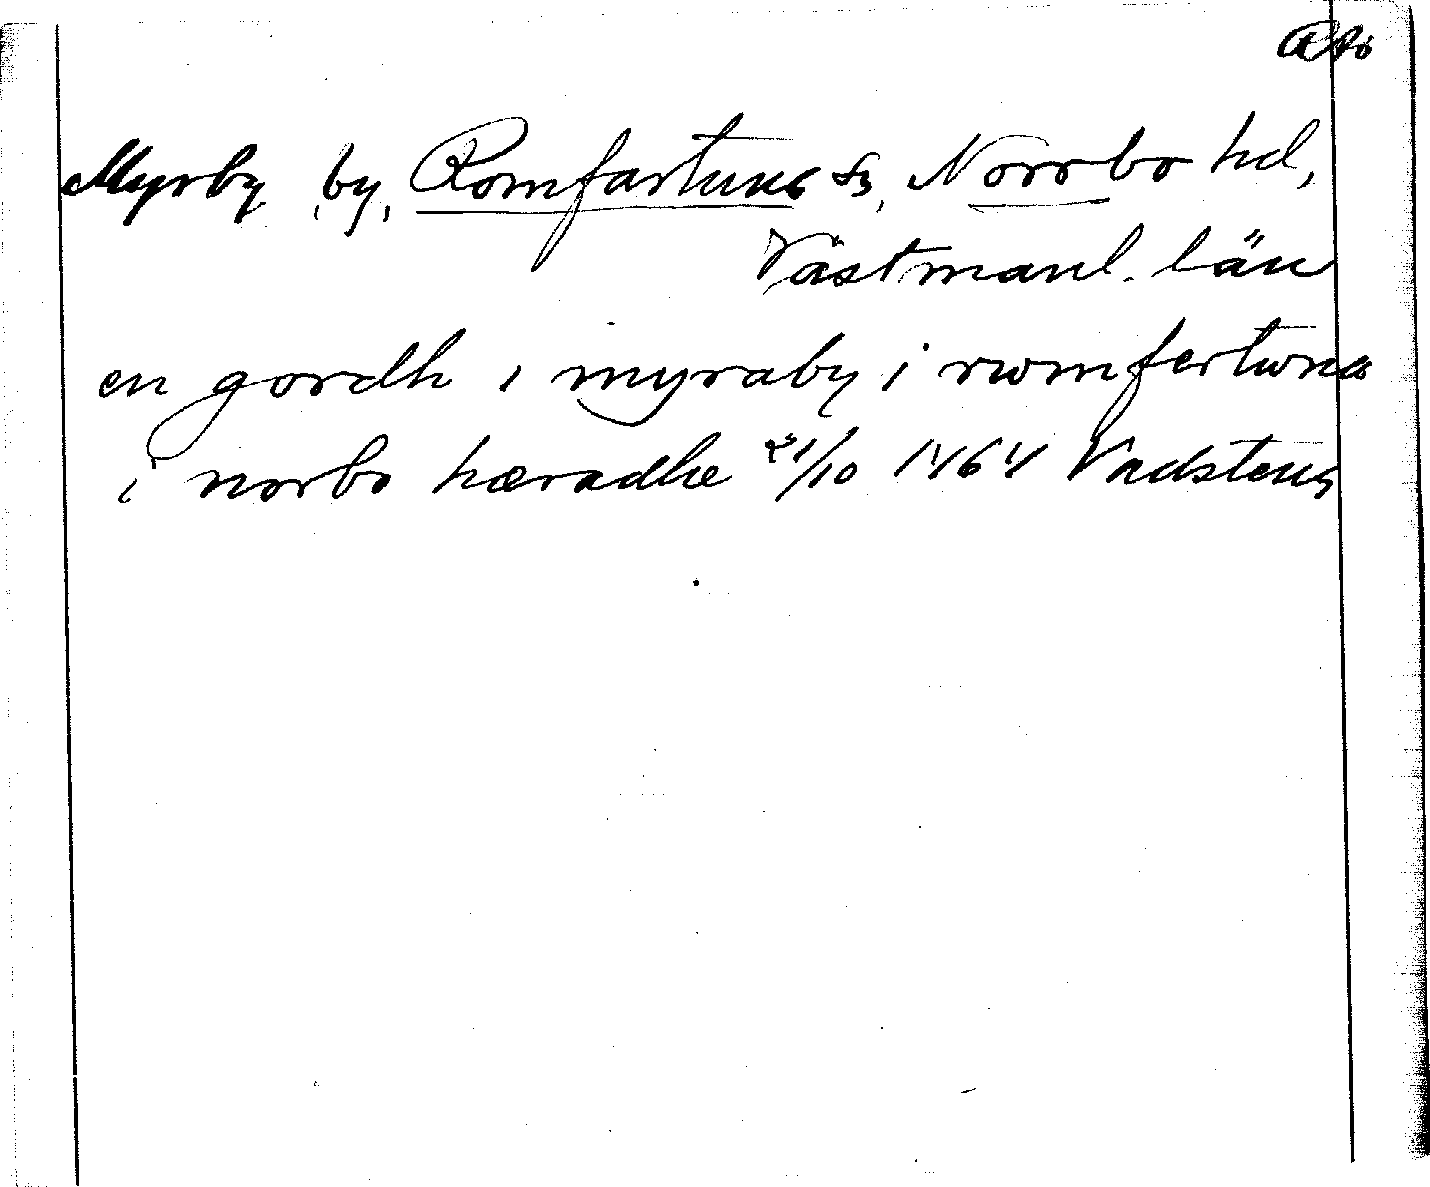 RAö
Myrby, by, Romfartuna sn, Norrbo hd,
Västmanl. län
en gordh i myraby i rwmfertwna
i norbo hæradhe 21/10 1464 Vadstena